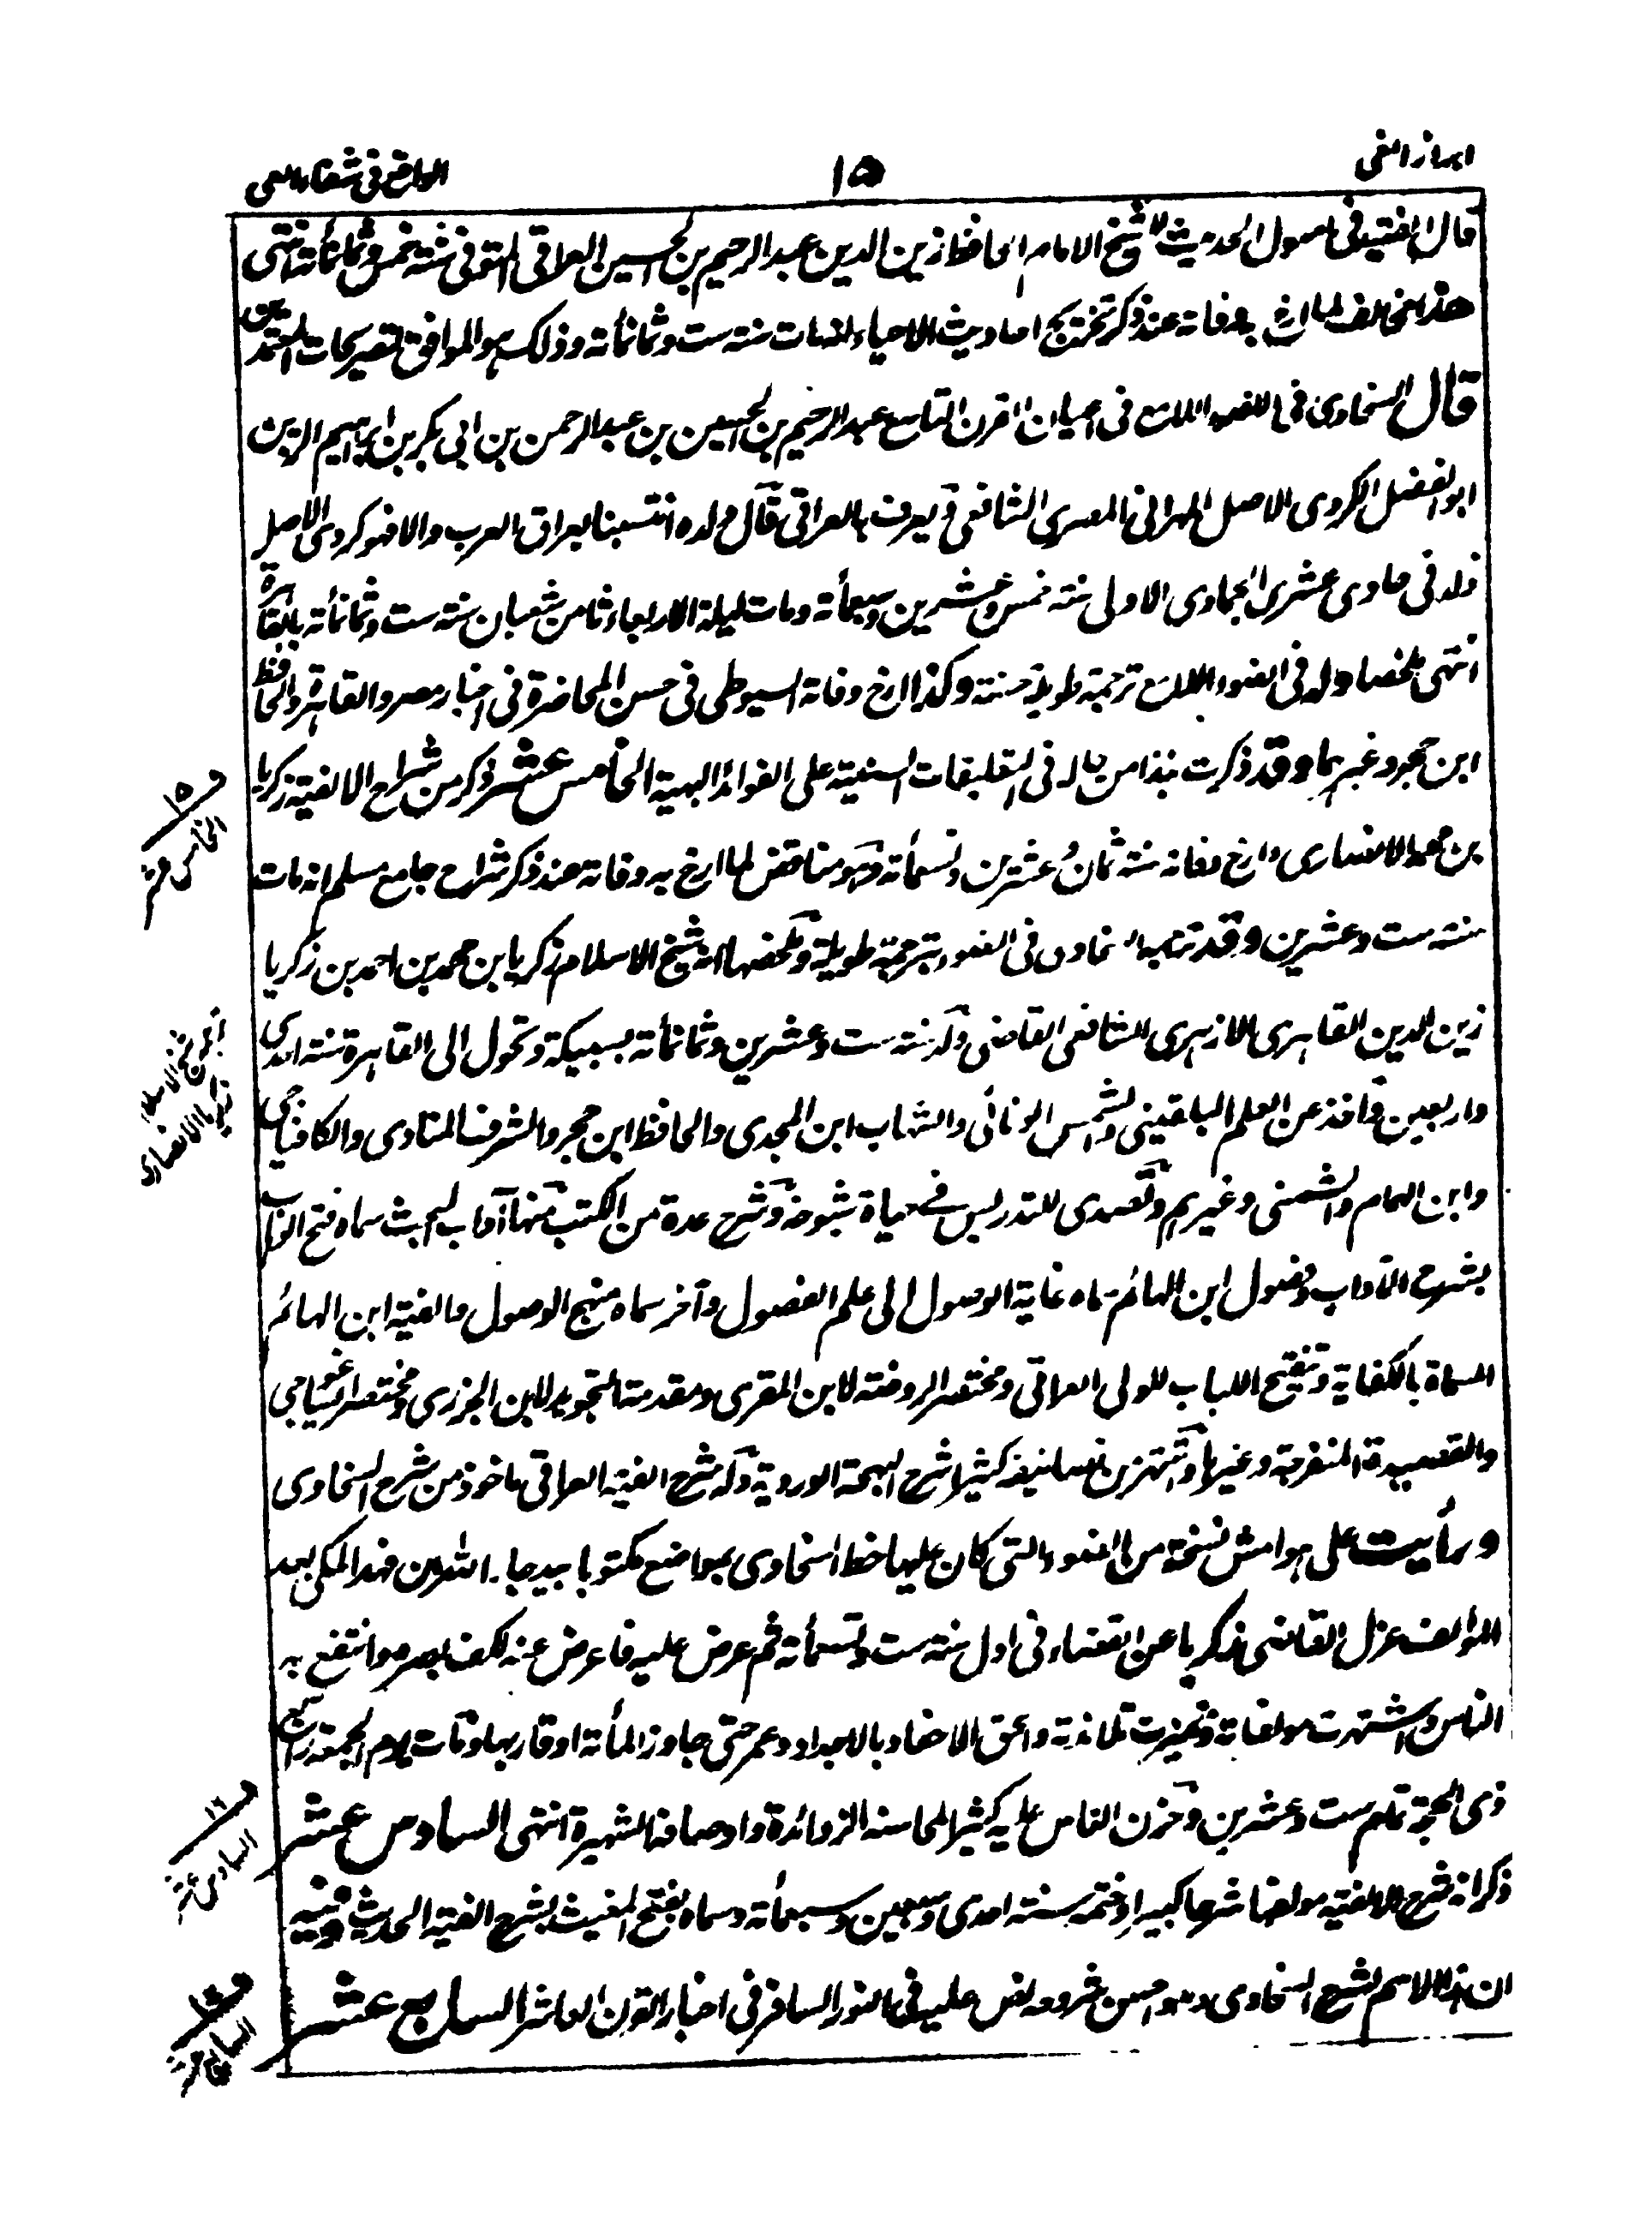 ابراز الغى
١٥
الواقع فى شفاء العى
قال الفيته فى اصول الحديث للشيخ الامام الحافظ زين الدين عبد الرحيم بن الحسين العراقى المتوفى سنة خمس وثمانمائة انتهى
هذا مخالف لما ارخ به وفاته عند ذكر تخريج احاديث الاحياء انه مات سنة ست وثمانمائة وذلك هو الموافق لتصريحات المعتمدين
قال السخاوى فى الضوء اللامع فى اعيان القرن التاسع عبد الرحيم بن الحسين بن عبد الرحمن بن ابى بكر بن ابراهيم الزين
ابو الفضل الكردى الاصل المهرانى المصرى الشافعى ويعرف بالعراقى قال ولده انتسبنا لعراق العرب والا فهو كردى الاصل
ولد فى حادى عشرى الجمادى الاولى سنة خمس وعشرين وسبعمائة ومات ليلة الاربعاء ثامن شعبان سنة ست وثمانمائة بالقاهرة
انتهى ملخصا وله فى الضوء اللامع ترجمة طويلة حسنة وكذا ارخ وفاته السيوطى فى حسن المحاضرة فى اخبار مصر والقاهرة والحافظ
ابن حجر وغيرهما وقد ذكرت نبذا من حاله فى التعليقات السنية على الفوائد البهية الخامس عشر ذكر من شراح الالفية زكريا
بن محمد الانصارى وارخ وفاته سنة ثمان وعشرين وتسعمائة وهو مناقض لما ارخ به وفاته عند ذكر شراح جامع مسلم انه مات
سنة ست وعشرين وقد ترجمه السخاوى فى الضوء بترجمة طويلة وملخصها انه شيخ الاسلام زكريا بن محمد بن احمد بن زكريا
زين الدين القاهرى الازهرى الشافعى القاضى ولد سنة ست وعشرين وثمانمائة بسبيكة وتحول الى القاهرة سنة احدى
واربعين واخذ عن العلم البلقينى والشمس الونائى والشهاب ابن المجدى والحافظ ابن حجر والشرف المناوى والكافياجى
وابن الهمام والشمنى وغيرهم وتصدى للتدريس فى حياة شيوخه وشرح عدة من الكتب منها آداب البحث سماه فتح الوهاب
بشرح الآداب وفصول ابن الهائم سماه غاية الوصول الى علم الفصول وآخر سماه منهج الوصول والفية ابن الهائم
المسماة بالكفاية وتنقيح اللباب للولى العراقى ومختصر الروضة لابن المقرى ومقدمة التجويد لابن الجزرى ومختصر ايساغوجى
والقصيدة المنفرجة وغيرها واشتهر من تصانيفه كثيرا شرح البهجة الوردية وله شرح الفية العراقى ماخوذ من شرح السخاوى
ورأيت على هوامش نسخة من الضوء التى كان عليها خط السخاوى بمواضع مكتوبا بيد جار الله بن فهد المكى بعد
المؤلف عزل القاضى زكريا عن القضاء فى اول سنة ست وتسعمائة ثم عرض عليه فاعرض عنه لكف بصره وانتفع به
الناس واشتهرت مولفاته وتميزت تلامذته والحق الاحفاد بالاجداد وعمر حتى جاوز المائة او قاربها ومات يوم الجمعة رابع
ذى الحجة تمام ست وعشرين وحزن الناس عليه كثيرا لمحاسنه الزائدة واوصافه الشهيرة انتهى السادس عشر
ذكر انه شرح الالفية مولفها شرحا كبيرا وختمه سنة احدى وسبعين وسبعمائة وسماه بفتح المغيث بشرح الفية الحديث وفيه
ان هذا الاسم لشرح السخاوى وهو احسن شروحه نص عليه فى النور السافر فى اخبار القرن العاشر السابع عشر
١٥
الخامس عشر
ترجمة شيخ الاسلام
زكريا الانصارى
١٦
السادس عشر
١٧
السابع عشر